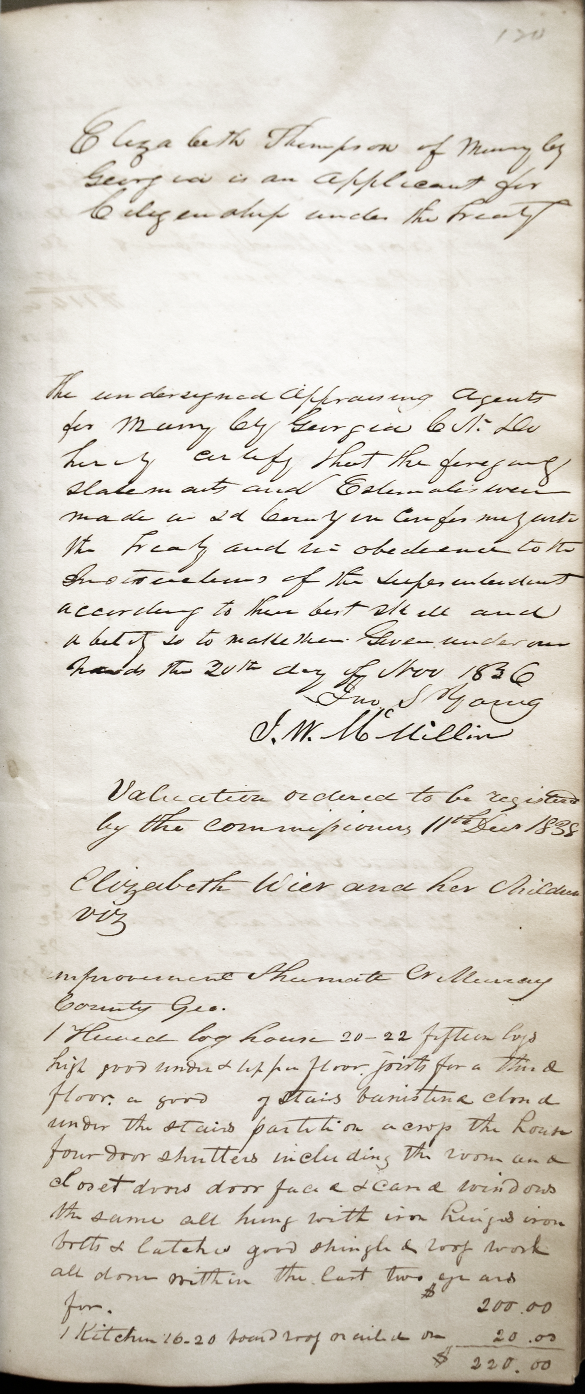 120
Elizabeth Thompson of Murry Cy
Georgia is an applicant for
Citizenship under the Treaty
The undersigned Appraising Agents
for Murry Cty Georgia C. N. Do
hereby certify that the foregoing
statements and Estimates were
made in sd County in Conformity with
the Treaty and in obedience to the
Instructions of the Superintendent
according to their best skill and
ability so to make them. Given under our
hands the 20th day of Nov 1836
Jno S Young
J. W. McMillin
Valuation ordered to be registered
by the commissioners 11th Decr 1838
Elizabeth Wier and her Children
viz
improvement Murray
County Geo.
1 Hewed log house 20-22 fifteen logs
high good under & upper floor, joists for a third
floor. a good of stairs banistered closed
under the stairs partition across the house
four door shutters including the room and
closet doors door faced & cased windows
the same all hung with iron hinges iron
bolts & latches good shingled roof work
all done within the last two years
for. $ 200.00
1 Kitchen 16-20 board roof nailed on 20.00
$ 220.00